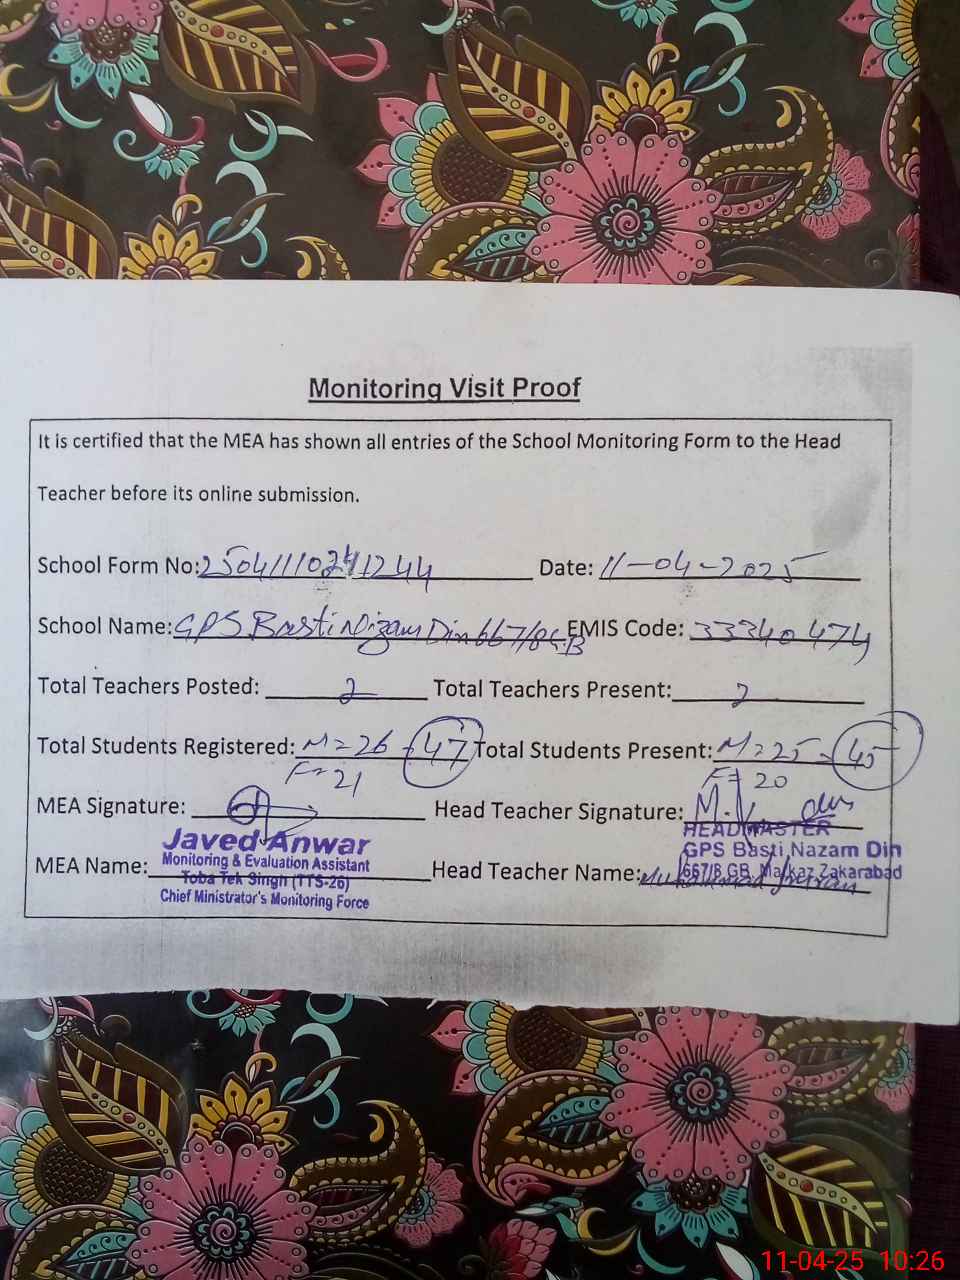 Monitoring Visit Proof
It is certified that the MEA has shown all entries of the School Monitoring Form to the Head
Teacher before its online submission.
School Form No: Date: 11-04-2025
School Name: GPS Basti Nizam Din 667/8G.B EMIS Code: 33340474
Total Teachers Posted: 2 Total Teachers Present: 2
Total Students Registered: M=26 - 47 Total Students Present: M=25 - 45
F=21 F=20
MEA Signature: Head Teacher Signature:
Javed Anwar HEADMASTER
Monitoring & Evaluation Assistant GPS Basti Nazam Din
MEA Name: Toba Tek Singh (TTS-26) Head Teacher Name: Muhammad 667/8 GB Markaz Zakarabad
Chief Ministrator's Monitoring Force
11-04-25 10:26